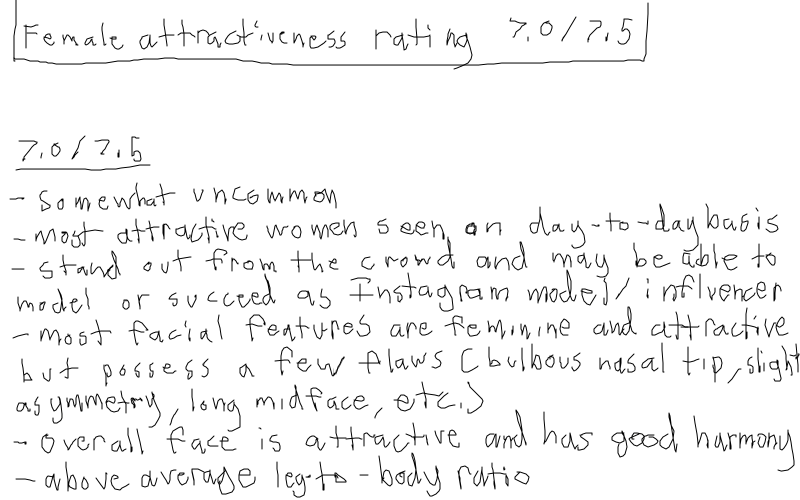 Female attractiveness rating 7.0/7.5
7.0/7.5
- somewhat uncommon
- most attractive women seen on day-to-day basis
- stand out from the crowd and may be able to
model or succeed as Instagram model/influencer
- most facial features are feminine and attractive
but possess a few flaws (bulbous nasal tip, slight
asymmetry, long midface, etc.)
- overall face is attractive and has good harmony
- above average leg-to-body ratio